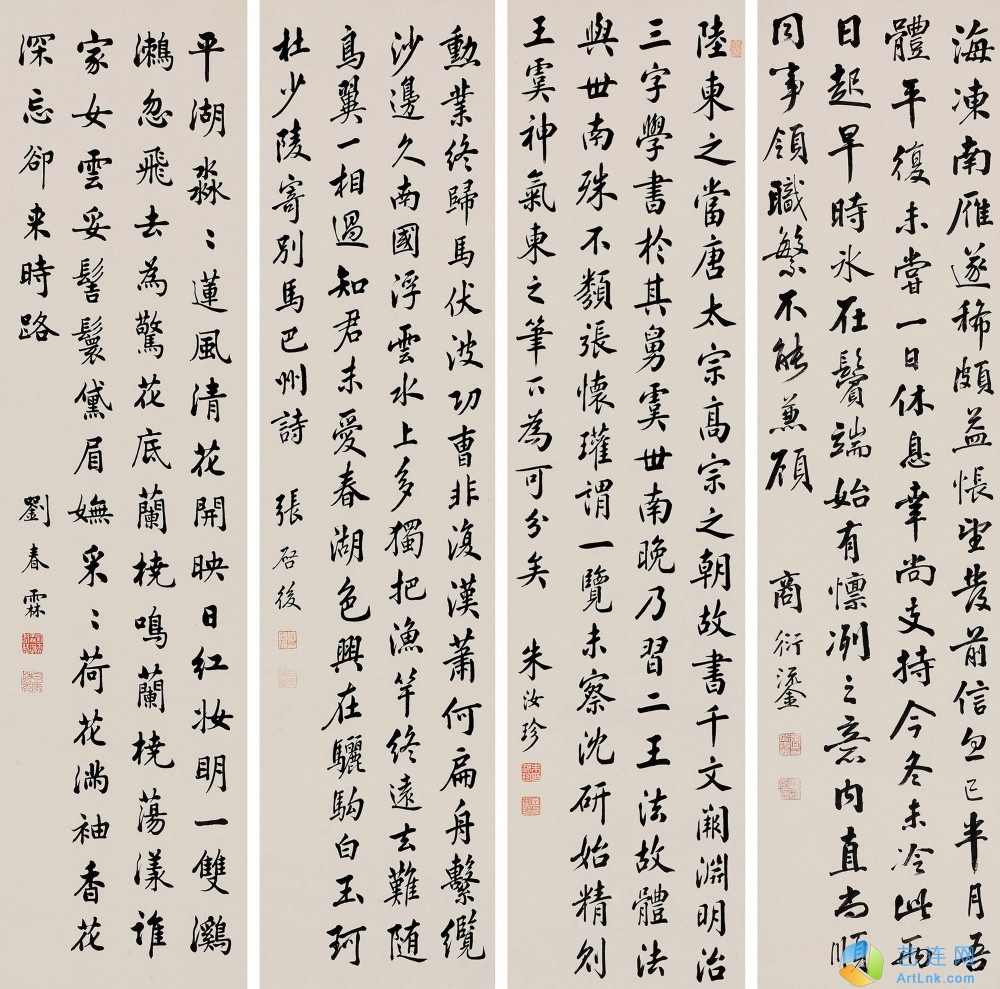 海凍南雁遂稀頗益悵望發前信包已半月吾
體平復未嘗一日休息幸尚支持今冬未冷此兩
日起早時冰在鬢端始有懍冽之意內直尚順
同事領職繁不能兼顧
商衍鎏
陸柬之當唐太宗高宗之朝故書千文闕淵明治
三字學書於其舅虞世南晚乃習二王法故體法
與世南殊不類張懷瓘謂一覽未察沈研始精則
王虞神氣柬之筆下為可分矣
朱汝珍
勳業終歸馬伏波功曹非復漢蕭何扁舟繫纜
沙邊久南國浮雲水上多獨把漁竿終遠去難隨
鳥翼一相過知君未愛春湖色興在驪駒白玉珂
杜少陵寄別馬巴州詩
張啓後
平湖淼〻蓮風清花開映日紅妝明一雙鸂
鶒忽飛去為驚花底蘭橈鳴蘭橈蕩漾誰
家女雲妥髻鬟黛眉嫵采〻荷花滿袖香花
深忘卻来時路
劉春霖
艺连网
ArtLnk.com